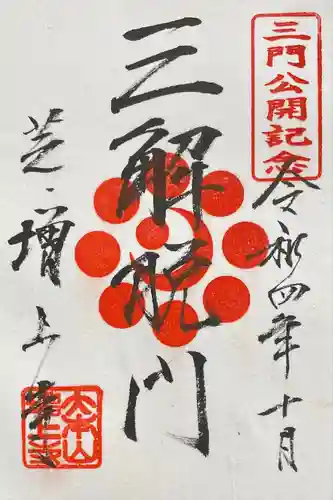 三門公開記念
令和四年十月
三解脱門
芝 増上寺
大本山
増上寺